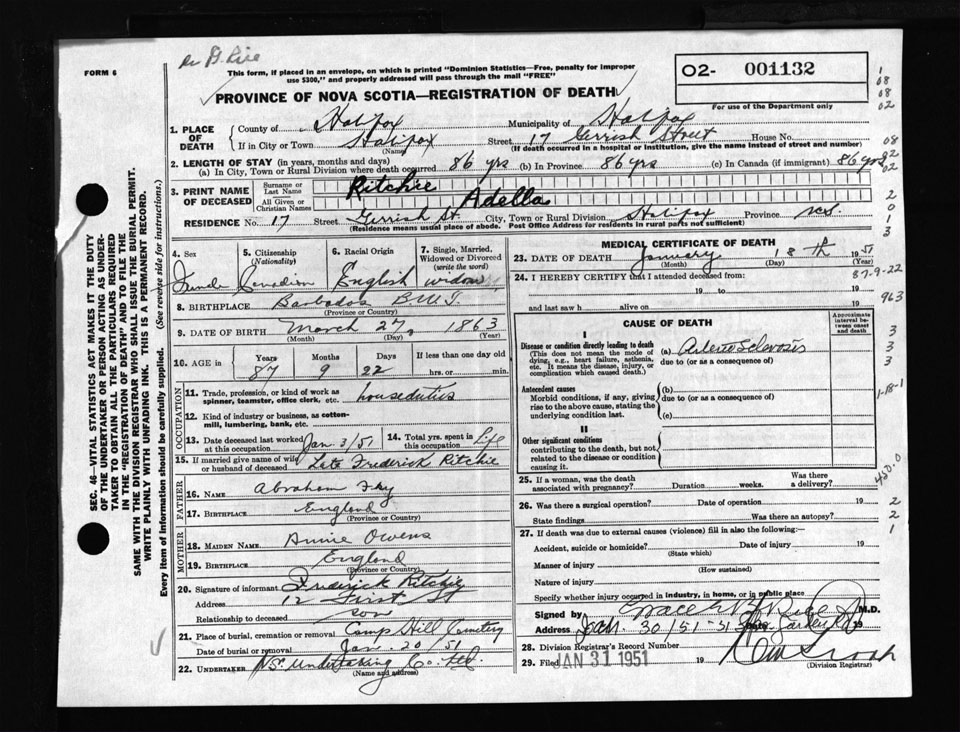 FORM 6
This form, if placed in an envelope, on which is printed "Dominion Statistics—Free, penalty for improper
use $300," and properly addressed will pass through the mail "FREE"
PROVINCE OF NOVA SCOTIA—REGISTRATION OF DEATH
O2- 001132
For use of the Department only
1. PLACE OF DEATH
County of Halifax Municipality of Halifax
If in City or Town Halifax Street 17 Gerrish Street House No.
(Name) (If death occurred in a hospital or institution, give the name instead of street and number)
2. LENGTH OF STAY (in years, months and days)
(a) In City, Town or Rural Division where death occurred 86 yrs (b) In Province 86 yrs (c) In Canada (if immigrant) 86 yrs
3. PRINT NAME OF DECEASED
Surname or Last Name Ritchie
All Given or Christian Names Adella
RESIDENCE No. 17 Street Gerrish St. City, Town or Rural Division Halifax Province N.S.
(Residence means usual place of abode. Post Office Address for residents in rural parts not sufficient)
4. Sex 5. Citizenship (Nationality) 6. Racial Origin 7. Single, Married, Widowed or Divorced (write the word)
Female Canadian English widow
8. BIRTHPLACE Barbados B.W.I.
(Province or Country)
9. DATE OF BIRTH March 27, 1863
(Month) (Day) (Year)
10. AGE in Years Months Days If less than one day old
87 9 22 hrs. or min.
OCCUPATION
11. Trade, profession, or kind of work as
spinner, teamster, office clerk, etc. houseduties
12. Kind of industry or business, as cotton-
mill, lumbering, bank, etc.
13. Date deceased last worked at this occupation Jan 3/51 14. Total yrs. spent in this occupation Life
15. If married give name of wife or husband of deceased Late Frederick Ritchie
FATHER
16. NAME Abraham Fay
17. BIRTHPLACE England
(Province or Country)
MOTHER
18. MAIDEN NAME Annie Owens
19. BIRTHPLACE England
(Province or Country)
20. Signature of informant Frederick Ritchie
Address 12 First St
Relationship to deceased son
21. Place of burial, cremation or removal Camp Hill Cemetery
Date of burial or removal Jan. 20/51
22. UNDERTAKER N.S. Undertaking Co. Ltd.
(Name and address)
MEDICAL CERTIFICATE OF DEATH
23. DATE OF DEATH January 18th 1951
(Month) (Day) (Year)
24. I HEREBY CERTIFY that I attended deceased from:
19 to 19
and last saw h alive on 19
CAUSE OF DEATH
Approximate interval between onset and death
I
Disease or condition directly leading to death (a) Arterio Sclerosis
(This does not mean the mode of dying, e.g., heart failure, asthenia, etc. It means the disease, injury, or complication which caused death.)
due to (or as a consequence of)
Antecedent causes (b)
Morbid conditions, if any, giving rise to the above cause, stating the underlying condition last.
due to (or as a consequence of)
(c)
II
Other significant conditions
contributing to the death, but not related to the disease or condition causing it.
25. If a woman, was the death associated with pregnancy? Duration weeks. Was there a delivery?
26. Was there a surgical operation? Date of operation 19
State findings Was there an autopsy?
27. If death was due to external causes (violence) fill in also the following:
Accident, suicide or homicide? Date of injury 19
(State which)
Manner of injury
(How sustained)
Nature of injury
Specify whether injury occurred in industry, in home, or in public place
Signed by M.D.
Address 19
Jan. 30/51
28. Division Registrar's Record Number
29. Filed JAN 31 1951 19
(Division Registrar)
SEC. 46—VITAL STATISTICS ACT MAKES IT THE DUTY
OF THE UNDERTAKER OR PERSON ACTING AS UNDER-
TAKER TO OBTAIN ALL THE PARTICULARS REQUIRED
IN THE "REGISTRATION OF DEATH" AND TO FILE THE
SAME WITH THE DIVISION REGISTRAR WHO SHALL ISSUE THE BURIAL PERMIT.
WRITE PLAINLY WITH UNFADING INK. THIS IS A PERMANENT RECORD.
Every item of information should be carefully supplied. (See reverse side for instructions.)
87-9-22
963
3
3
3
1-18-1
2
2
1